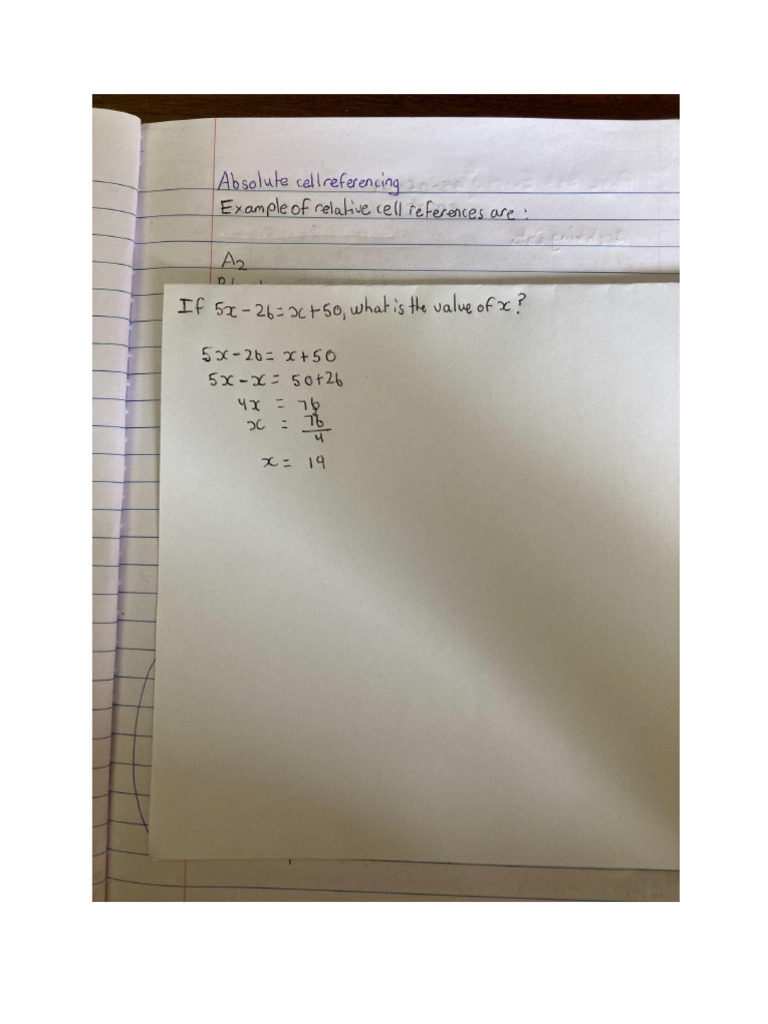 Absolute cell referencing
Example of relative cell references are :
A2
If 5x - 26 = x + 50, what is the value of x?
5x - 26 = x + 50
5x - x = 50 + 26
4x = 76
x = 76/4
x = 19